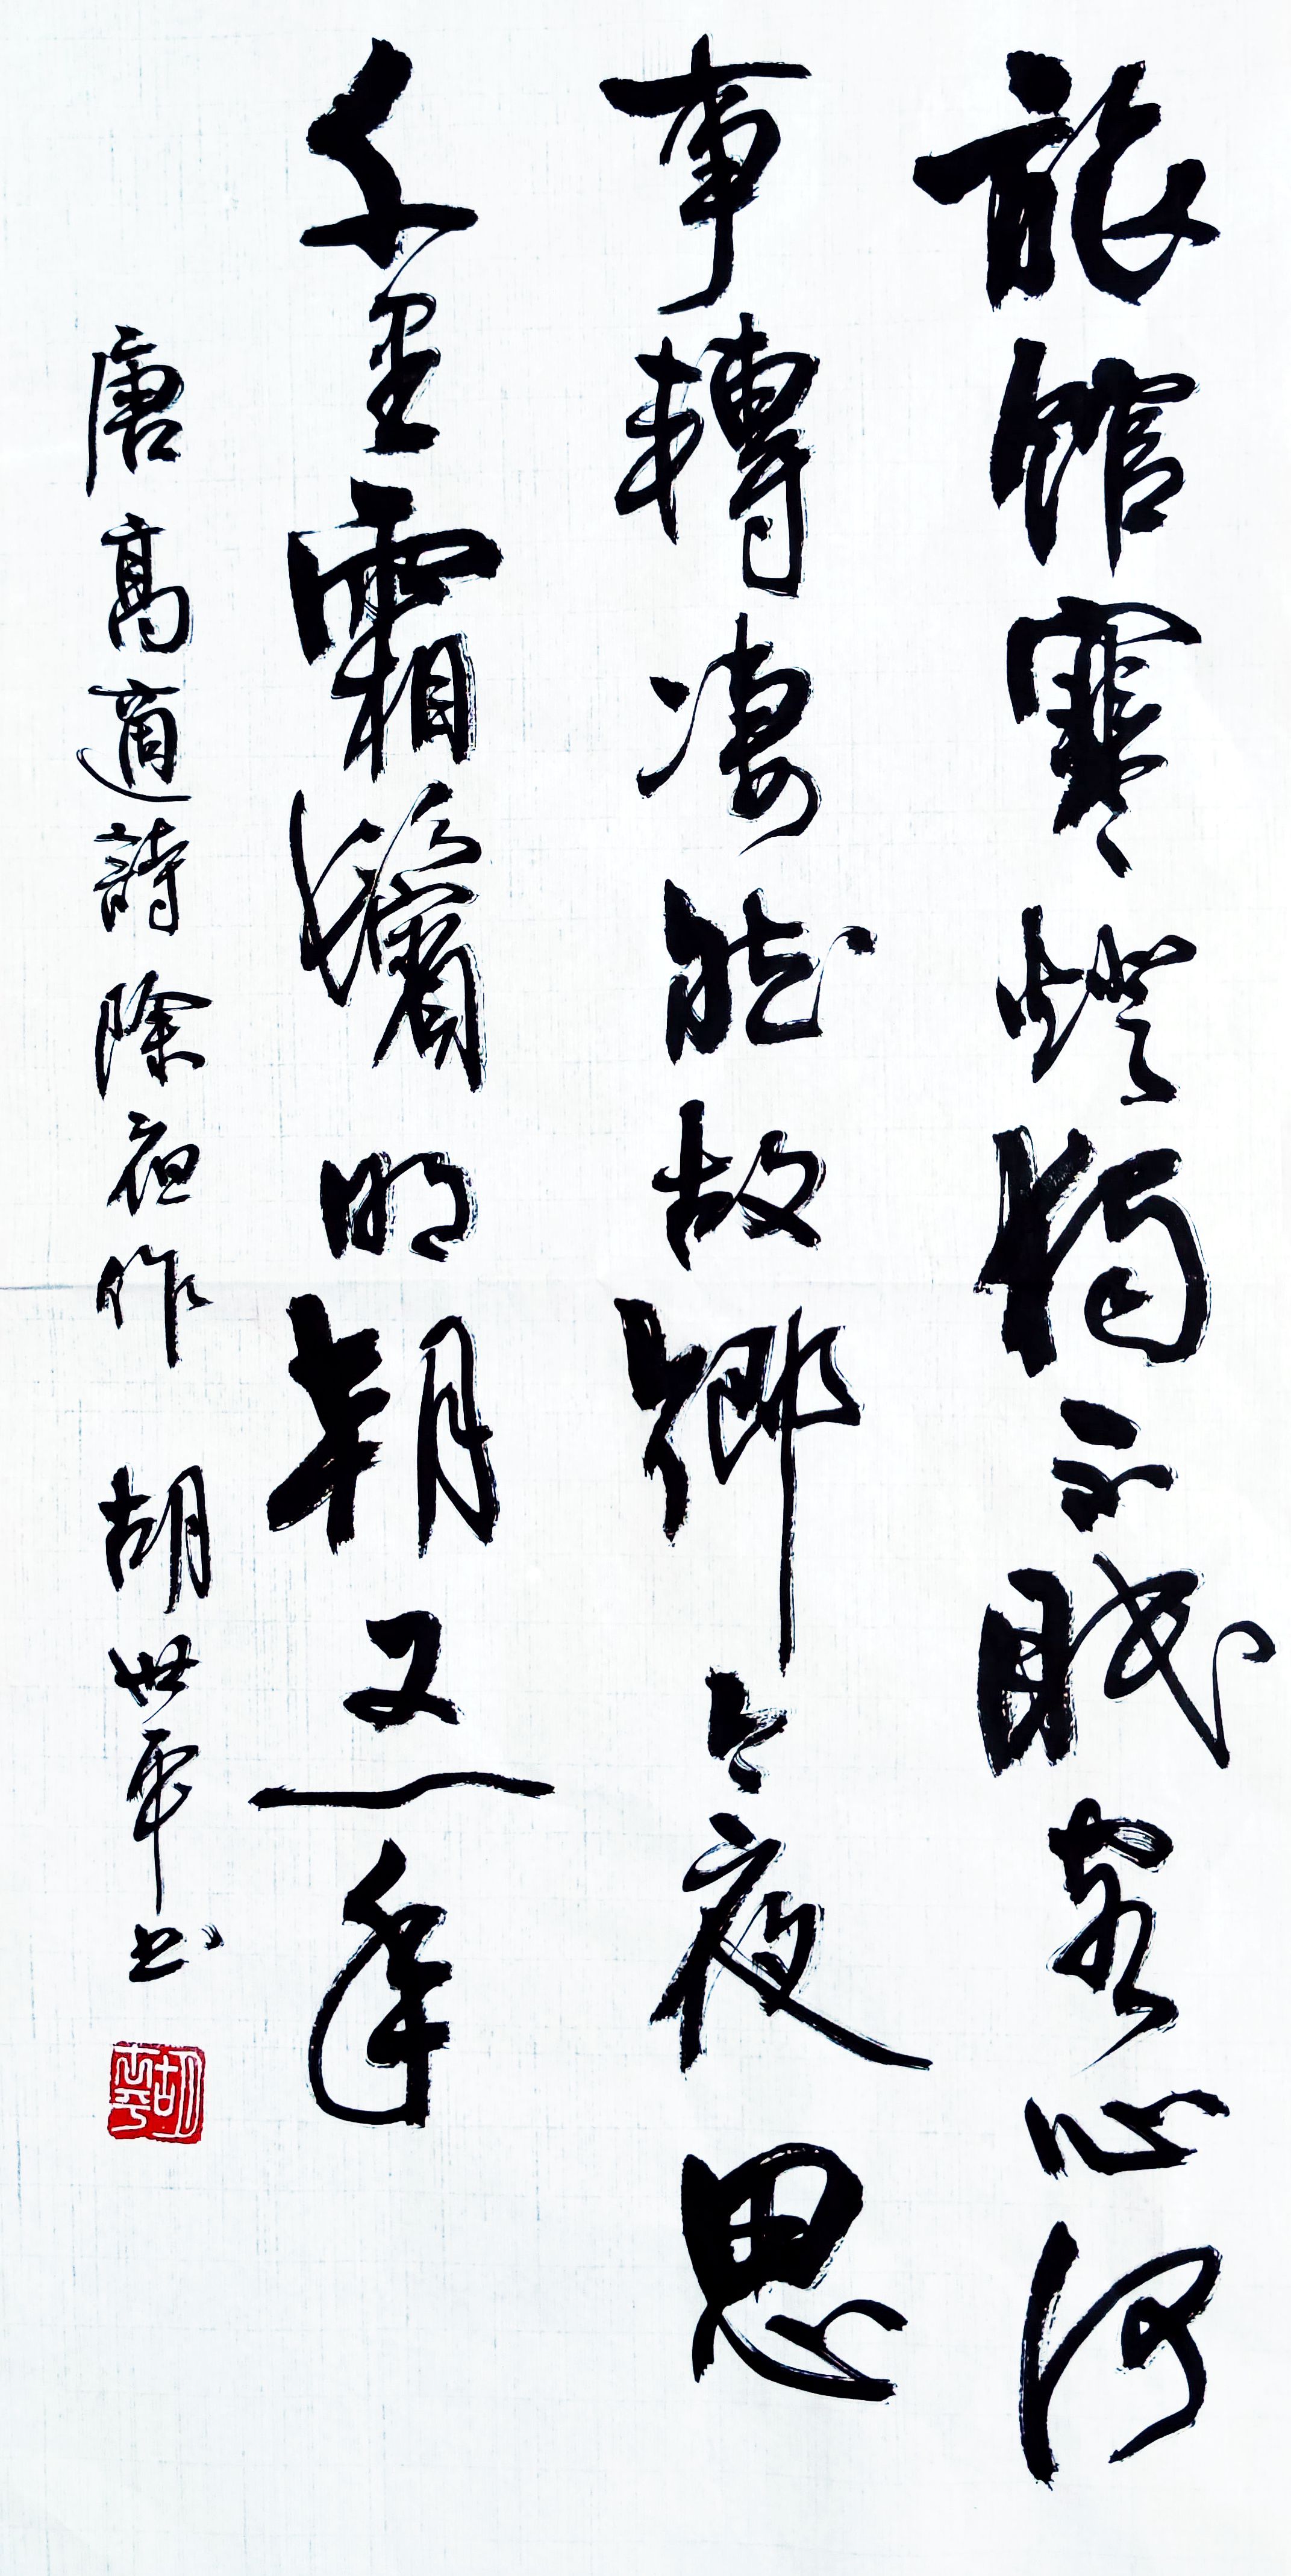 旅館寒燈獨不眠客心何
事轉凄然故鄉今夜思
千里霜鬢明朝又一年
唐高適詩除夜作 胡世平书
胡世平